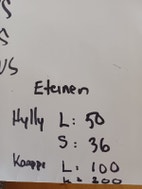 S
S
US
Eteinen
Hylly L: 50
S: 36
Kaappi L: 100
K: 200